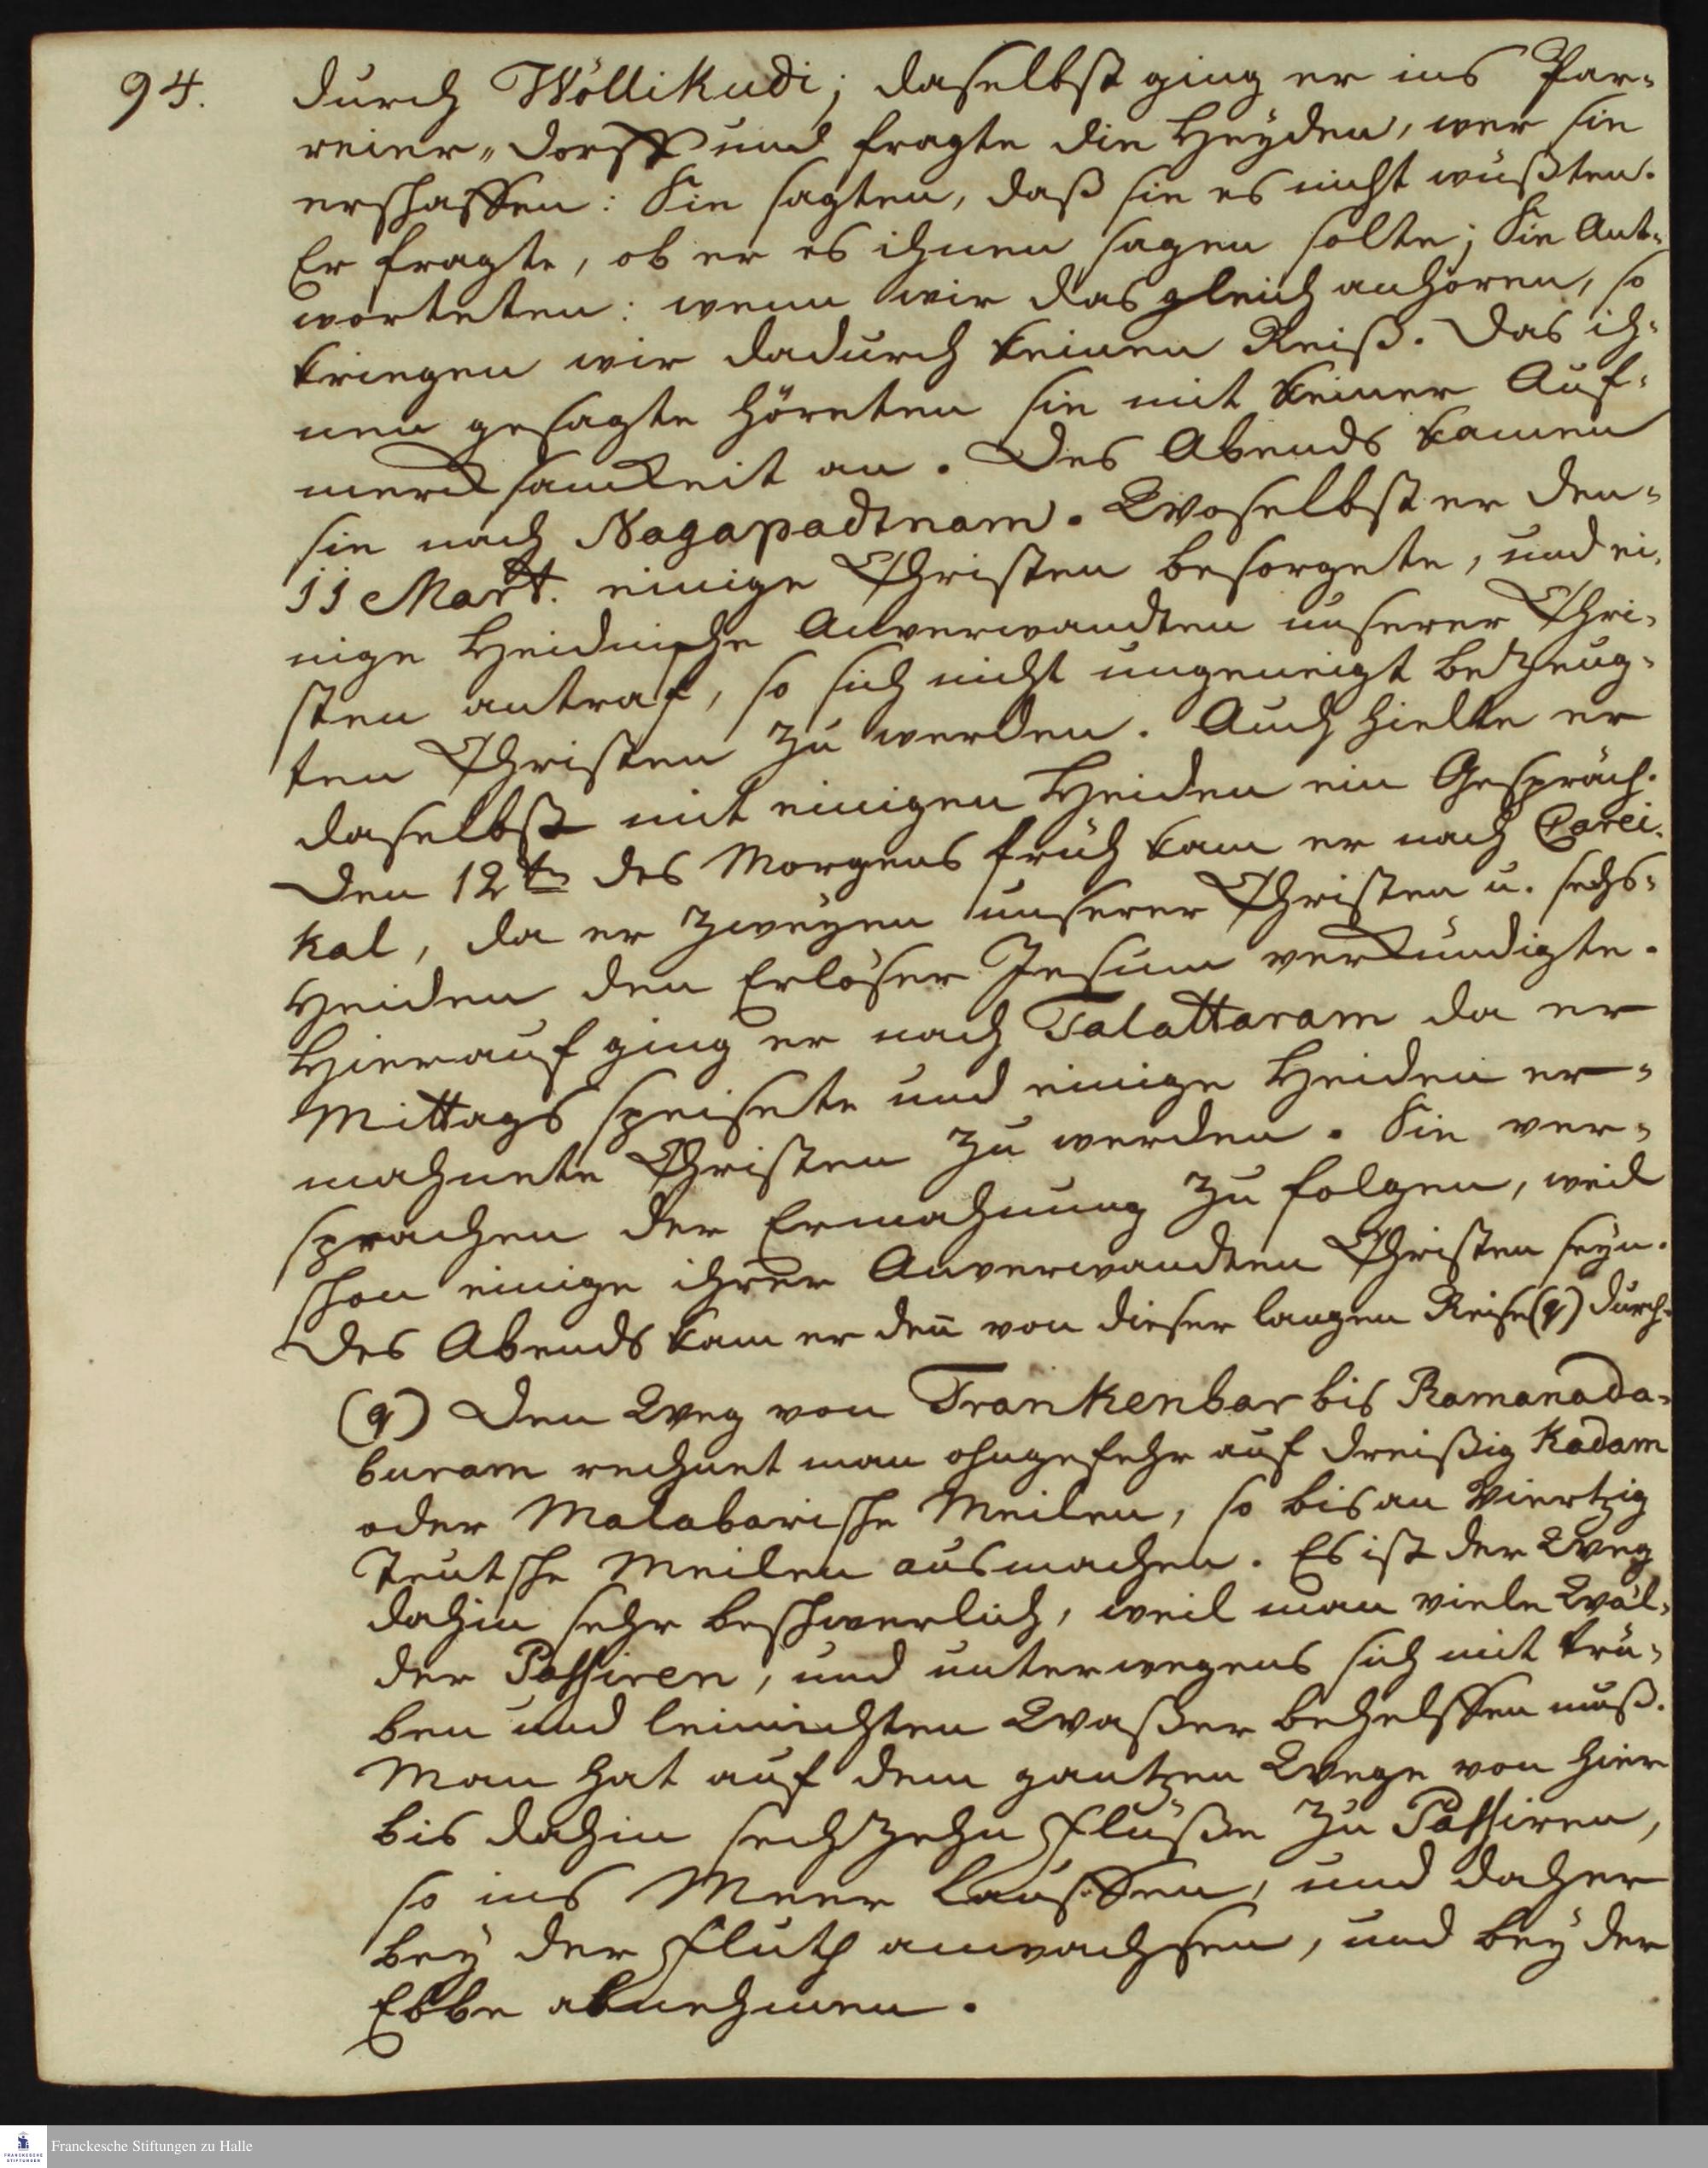 94.
durch Wöllikudi; daselbst ging er ins Par-
reier-Dorff und fragte die Heyden, wer sie
erschaffen: Sie sagten, daß sie es nicht wüßten.
Er fragte, ob er es ihnen sagen solte; Sie Ant-
worteten: wenn wir das gleich anhören, so
kriegen wir dadurch keinen Reiß. Das ih-
nen gesagte höreten sie mit keiner Auf-
mercksamkeit an. Des Abends kamen
sie nach Nagapadtnam. Woselbst er den
11 Mart. einige Christen besorgete, und ei-
nige Heidnische Anverwandten unserer Chri-
sten antraf, so sich nicht ungeneigt bezeug-
ten Christen zu werden. Auch hielte er
daselbst mit einigen Heiden ein Gespräch.
Den 12ten des Morgens früh kam er nach Carei-
kal, da er zweyen unserer Christen u. sechs
Heiden den Erlöser Jesum verkündigte.
Hierauf ging er nach Talattaram da er
Mittags speisete und einige Heiden er-
mahnete Christen zu werden. Sie ver-
sprachen der Ermahnung zu folgen, weil
schon einige ihrer Anverwandten Christen seyn.
Des Abends kam er den̄ von dieser langen Reise (q) durch
(q) Den Weg von Trankenbar bis Ramanada-
buram rechnet man ohngefehr auf dreißig Kadam
oder Malabarische Meilen, so bis an Viertzig
Teutsche Meilen ausmachen. Es ist der Weg
dahin sehr beschwerlich, weil man viele Wäl-
der Passiren, und unterwegens sich mit trü-
ben und leimichten Waßer behelffen muß.
Man hat auf dem gantzen Wege von hier
bis dahin sechzehn Flüße zu Passiren,
so ins Meer lauffen, und daher
bey der Fluth anwachsen, und bey der
Ebbe abnehmen.
Franckesche Stiftungen zu Halle
FRANCKESCHE
STIFTUNGEN